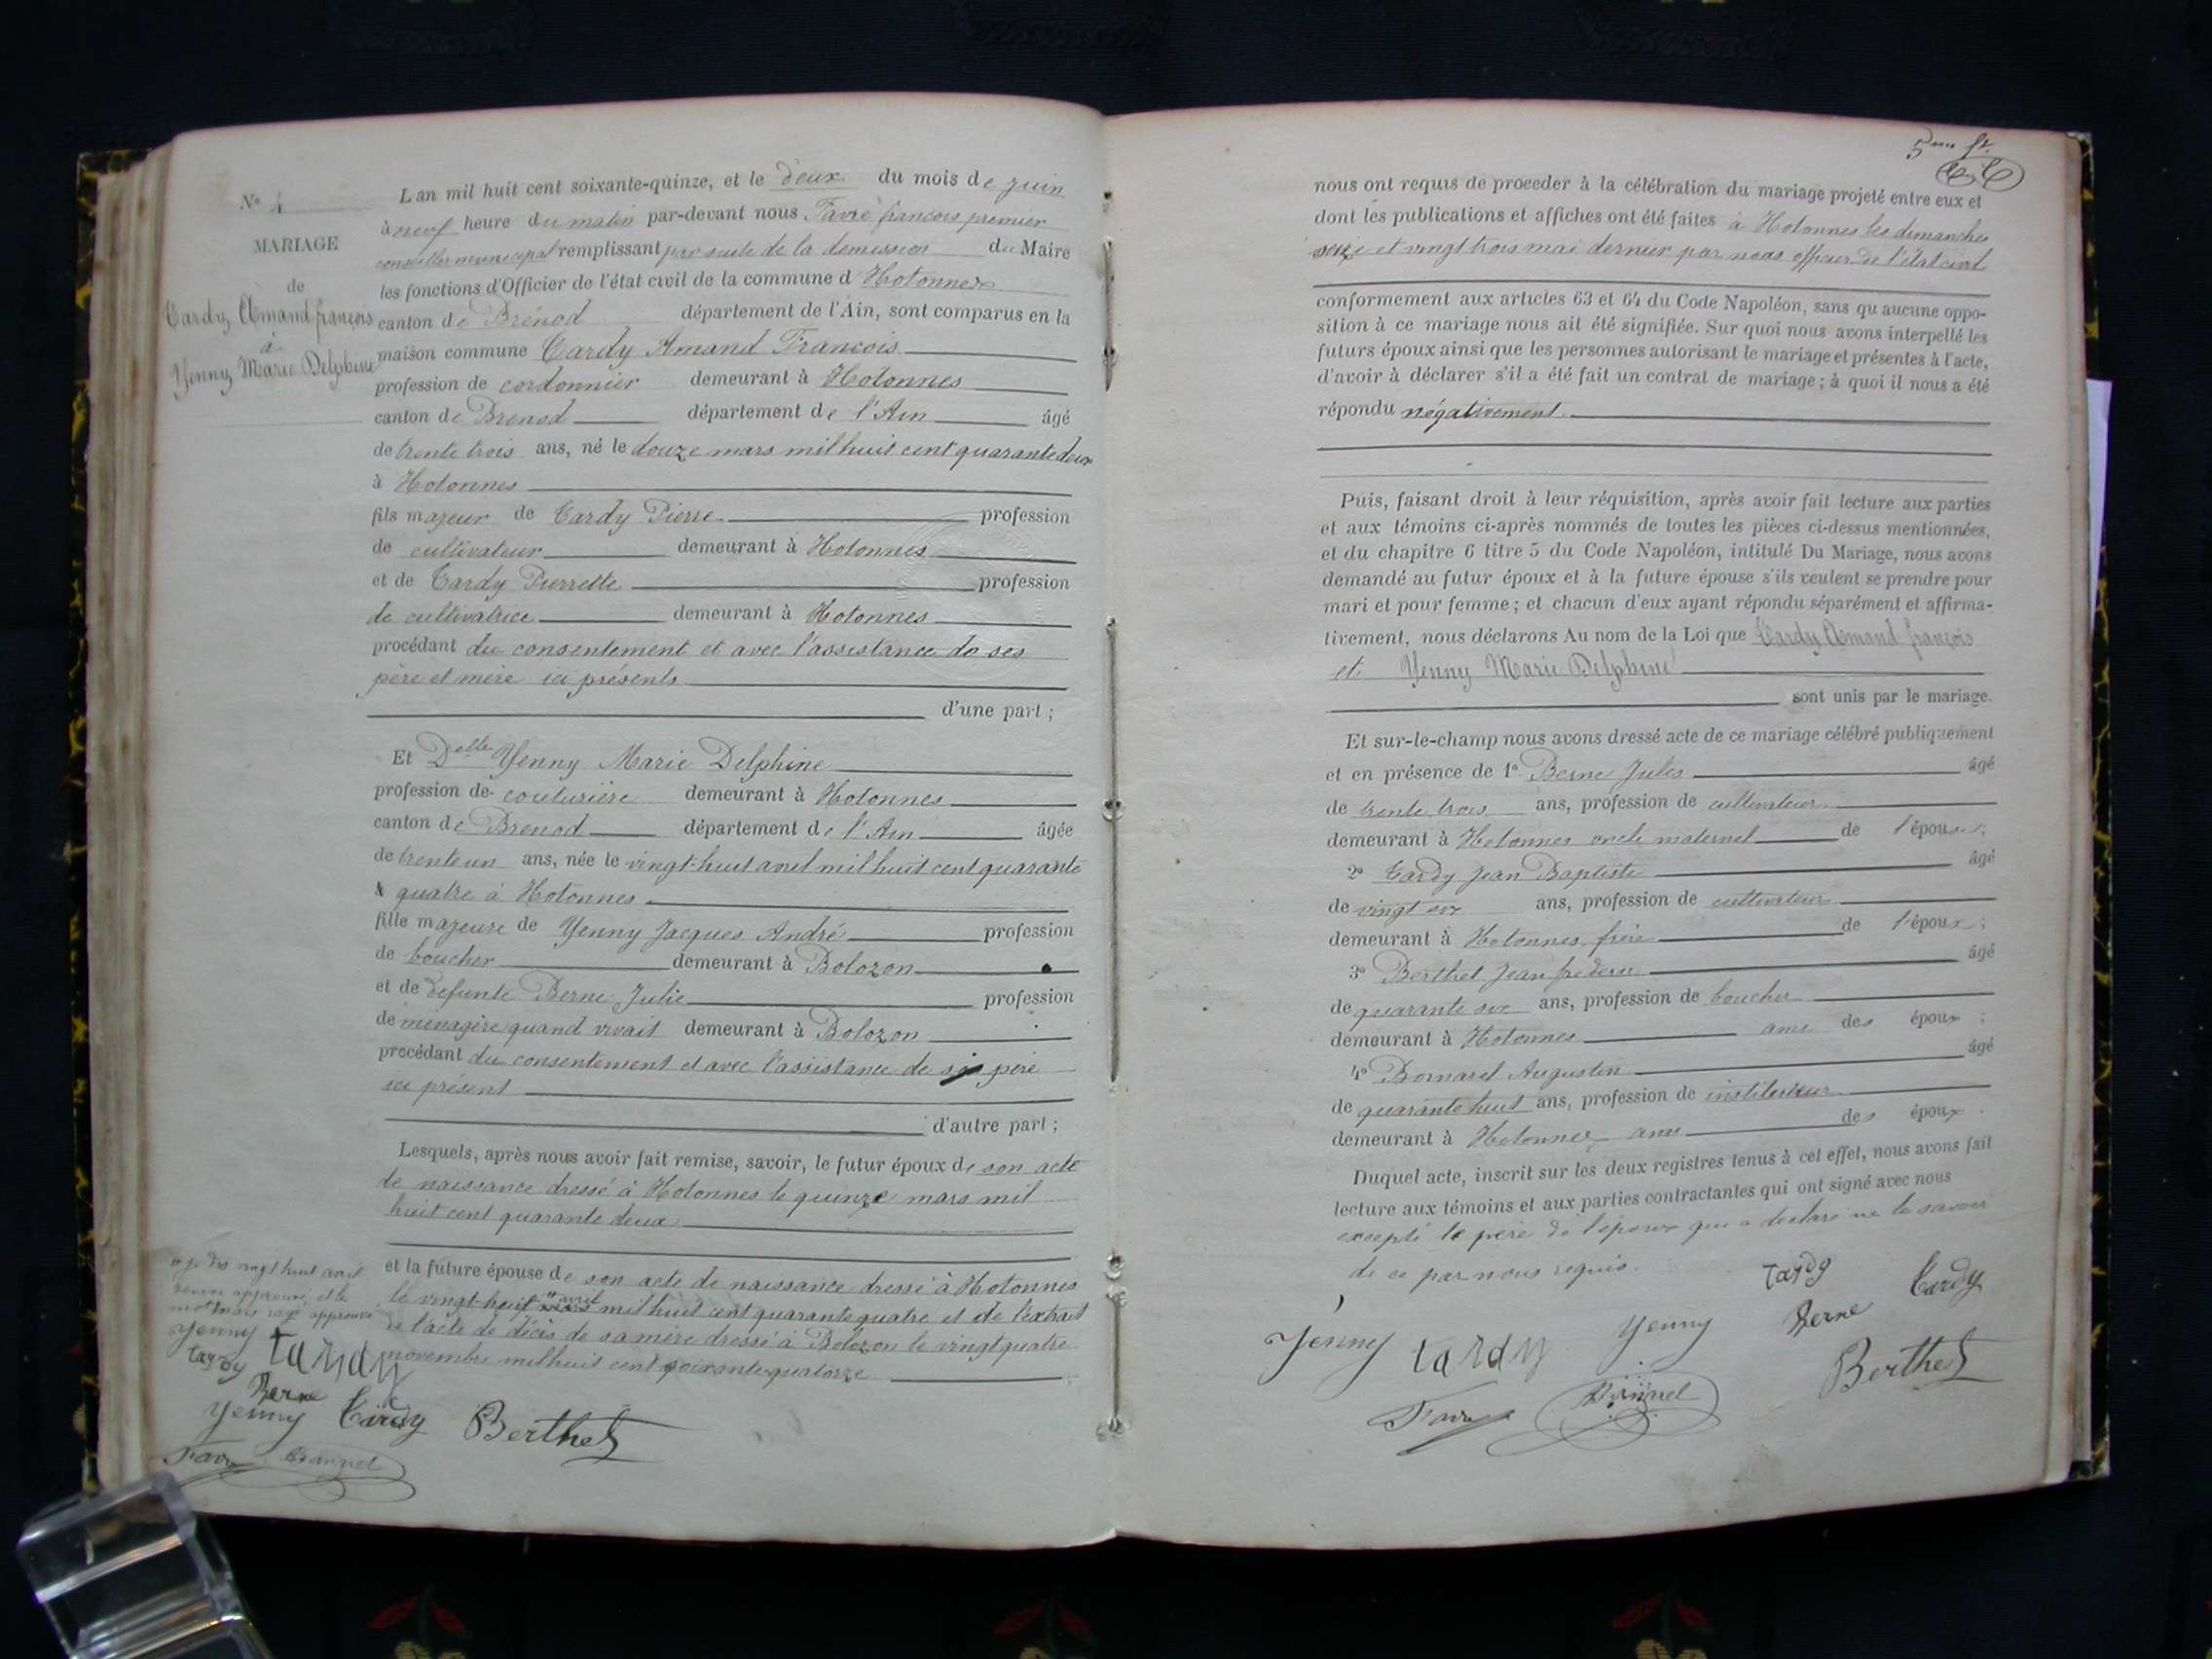 N° 4
MARIAGE
de
Tardy Amand françois
à
Yenny Marie Delphine
L'an mil huit cent soixante-quinze, et le deux du mois de juin
à neuf heure du matin par-devant nous Favre françois premier
conseiller municipal remplissant par suite de la demission du Maire
les fonctions d'Officier de l'état civil de la commune d'Hotonnes
canton de Brénod département de l'Ain, sont comparus en la
maison commune Tardy Amand François
profession de cordonnier demeurant à Hotonnes
canton de Brenod département de l'Ain âgé
de trente trois ans, né le douze mars mil huit cent quarante deux
à Hotonnes
fils majeur de Tardy Pierre profession
de cultivateur demeurant à Hotonnes
et de Tardy Pierrette profession
de cultivatrice demeurant à Hotonnes
procédant du consentement et avec l'assistance de ses
père et mère ici présents
d'une part ;
Et Delle Yenny Marie Delphine
profession de couturière demeurant à Hotonnes
canton de Brenod département de l'Ain âgée
de trente un ans, née le vingt-huit avril mil huit cent quarante
quatre à Hotonnes
fille majeure de Yenny Jacques André profession
de boucher demeurant à Bolozon
et de defunte Berne Julie profession
de ménagère quand vivait demeurant à Bolozon
procédant du consentement et avec l'assistance de son père
ici présent
d'autre part ;
Lesquels, après nous avoir fait remise, savoir, le futur époux de son acte
de naissance dressé à Hotonnes le quinze mars mil
huit cent quarante deux
et la future épouse de son acte de naissance dressé à Hotonnes
le vingt-huit avril mil huit cent quarante quatre et de l'extrait
de l'acte de décès de sa mère dressé à Bolozon le vingt quatre
novembre mil huit cent soixante-quatorze
vingt huit avril
renvoi approuvé et le
mot mars rayé approuvé
Yenny tardy
tardy
Berne
Yenny Tardy Berthet
Favre
5me ft.
nous ont requis de procéder à la célébration du mariage projeté entre eux et
dont les publications et affiches ont été faites à Hotonnes les dimanches
seize et vingt trois mai dernier par nous officier de l'état civil
conformement aux articles 63 et 64 du Code Napoléon, sans qu'aucune oppo-
sition à ce mariage nous ait été signifiée. Sur quoi nous avons interpellé les
futurs époux ainsi que les personnes autorisant le mariage et présentes à l'acte,
d'avoir à déclarer s'il a été fait un contrat de mariage ; à quoi il nous a été
répondu négativement.
Puis, faisant droit à leur réquisition, après avoir fait lecture aux parties
et aux témoins ci-après nommés de toutes les pièces ci-dessus mentionnées,
et du chapitre 6 titre 5 du Code Napoléon, intitulé Du Mariage, nous avons
demandé au futur époux et à la future épouse s'ils veulent se prendre pour
mari et pour femme ; et chacun d'eux ayant répondu séparément et affirma-
tivement, nous déclarons Au nom de la Loi que Tardy Amand françois
et Yenny Marie Delphine
sont unis par le mariage.
Et sur-le-champ nous avons dressé acte de ce mariage célébré publiquement
et en présence de 1° Berne Jules âgé
de trente trois ans, profession de cultivateur
demeurant à Hotonnes oncle maternel de l'épouse ;
2° Tardy Jean Baptiste âgé
de vingt six ans, profession de cultivateur
demeurant à Hotonnes, frère de l'époux ;
3° Berthet Jean frederic âgé
de quarante six ans, profession de boucher
demeurant à Hotonnes ami des époux ;
4° Bornarel Augustin âgé
de quarante huit ans, profession de instituteur
demeurant à Hotonnes ami des époux .
Duquel acte, inscrit sur les deux registres tenus à cet effet, nous avons fait
lecture aux témoins et aux parties contractantes qui ont signé avec nous
excepté le père de l'époux qui a declaré ne le savoir
de ce par nous requis.
tardy Tardy
Yenny tardy Yenny Berne
Berthet
Favre